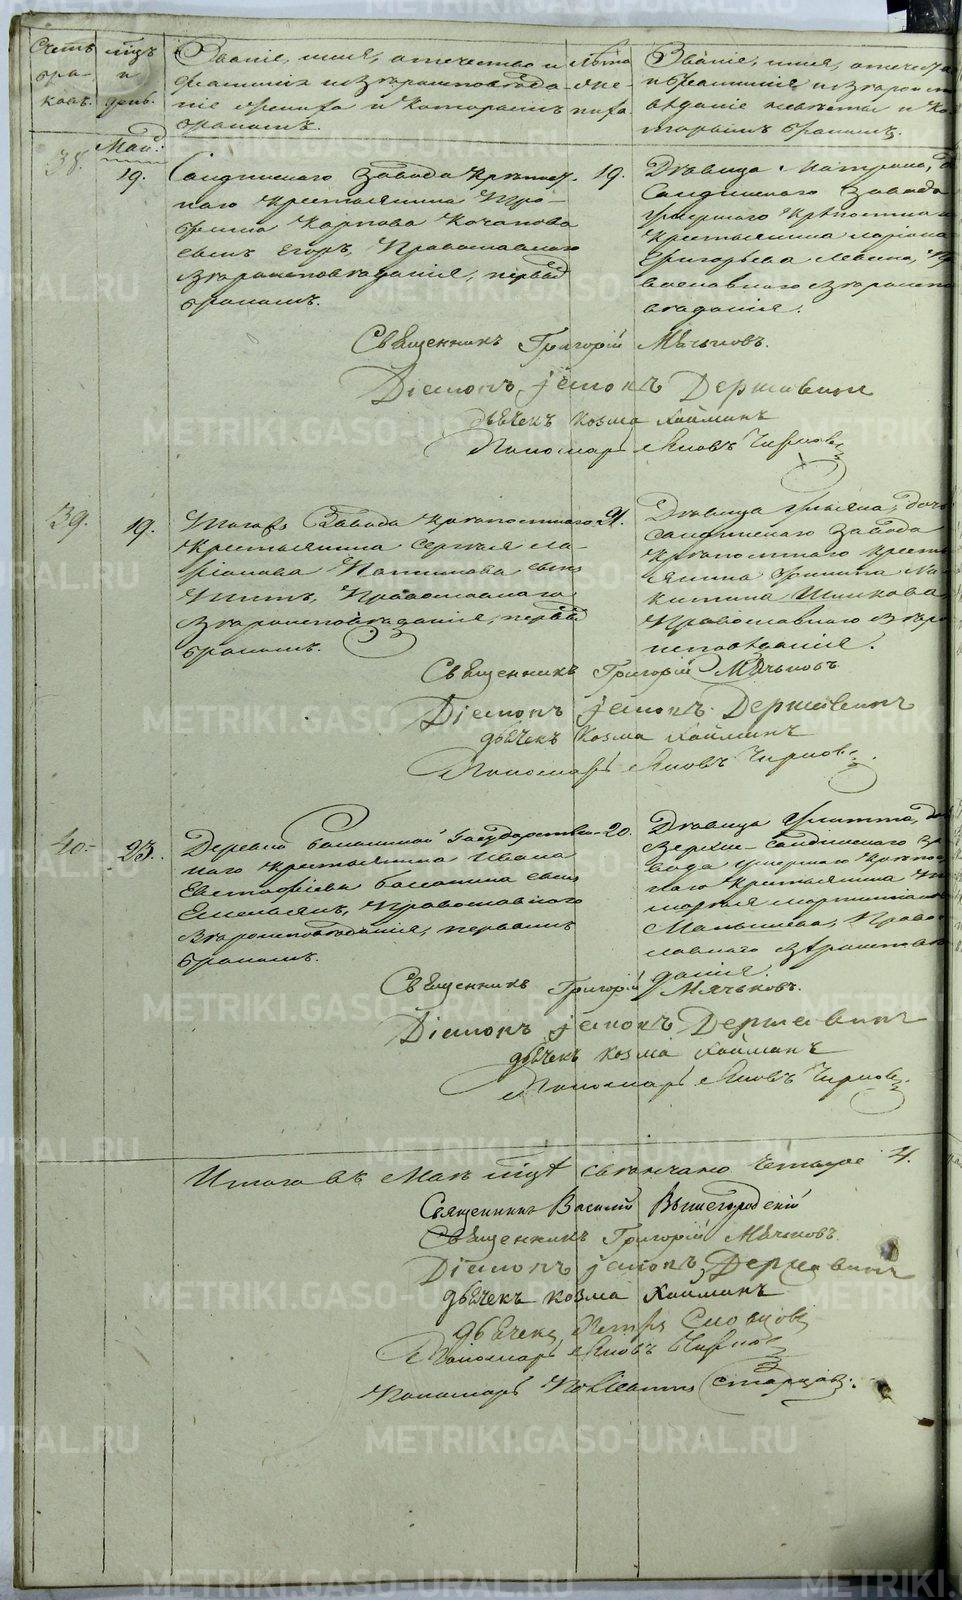 Счетъ бра- ковъ.
Мцъ и день.
Званіе, имя, отечество и
фамилія и вѣроисповѣда-
ніе жениха и которымъ
бракомъ.
Лѣта
же-
ниха
Званіе, имя, отечест
и фамилія и вѣроисп
вѣданіе невѣсты и ко
торымъ бракомъ.
Май:
38.
19.
Салдинскаго завода крѣпост-
наго крестьянина Тро-
фима Карпова Кочанова
сынъ Егоръ, Православнаго
вѣроисповѣданія, первымъ
бракомъ.
19.
Дѣвица Матрона, д
Салдинскаго завода
умершаго крѣпостна
крестьянина Ларіона
Григорьева Левина, Пр
вославнаго вѣроиспо
вѣданія.
Священникъ Григорій Мячьковъ.
Діаконъ Іаковъ Державинъ
дьячекъ Козма Хайминъ
Пономарь Яковъ Чирковъ
39.
19.
Завода крѣпостнаго
крестьянина Сергѣя Ла-
ріонова сынъ
Титъ, Православнаго
вѣроисповѣданія, первымъ
бракомъ.
21.
Дѣвица Ульяна, доч
Салдинскаго завода
крѣпостнаго кресть
янина Филиппа Ни
китина
Православнаго вѣро
исповѣданія.
Священникъ Григорій Мячьковъ
Діаконъ Іаковъ Державинъ
дьячекъ Козма Хайминъ
Пономарь Яковъ Чирковъ
40.
23.
Деревни Балакиной Государствен-
наго крестьянина Ивана
Евстафіева Балакина сынъ
Емельянъ, Православнаго
вѣроисповѣданія, первымъ
бракомъ.
20.
Дѣвица Улитта, до
Верхне-Салдинскаго за
вода умершаго крѣпос
наго крестьянина Ти
моѳея Мартиніано
Малышева, Право
славнаго вѣроисповѣ
данія.
Священникъ Григорій Мячьковъ.
Діаконъ Іаковъ Державинъ
дьячекъ Козма Хайминъ
Пономарь Яковъ Чирковъ.
Итого въ Маѣ мцѣ свѣнчано четыре 4.
Священникъ Василій Вышегородскій
Священникъ Григорій Мячьковъ.
Діаконъ Іаковъ Державинъ
дьячекъ Козма Хайминъ
дьячекъ Петръ Словцовъ
Пономарь Яковъ Чирковъ
Пономарь Старцовъ.
METRIKI.GASO-URAL.RU